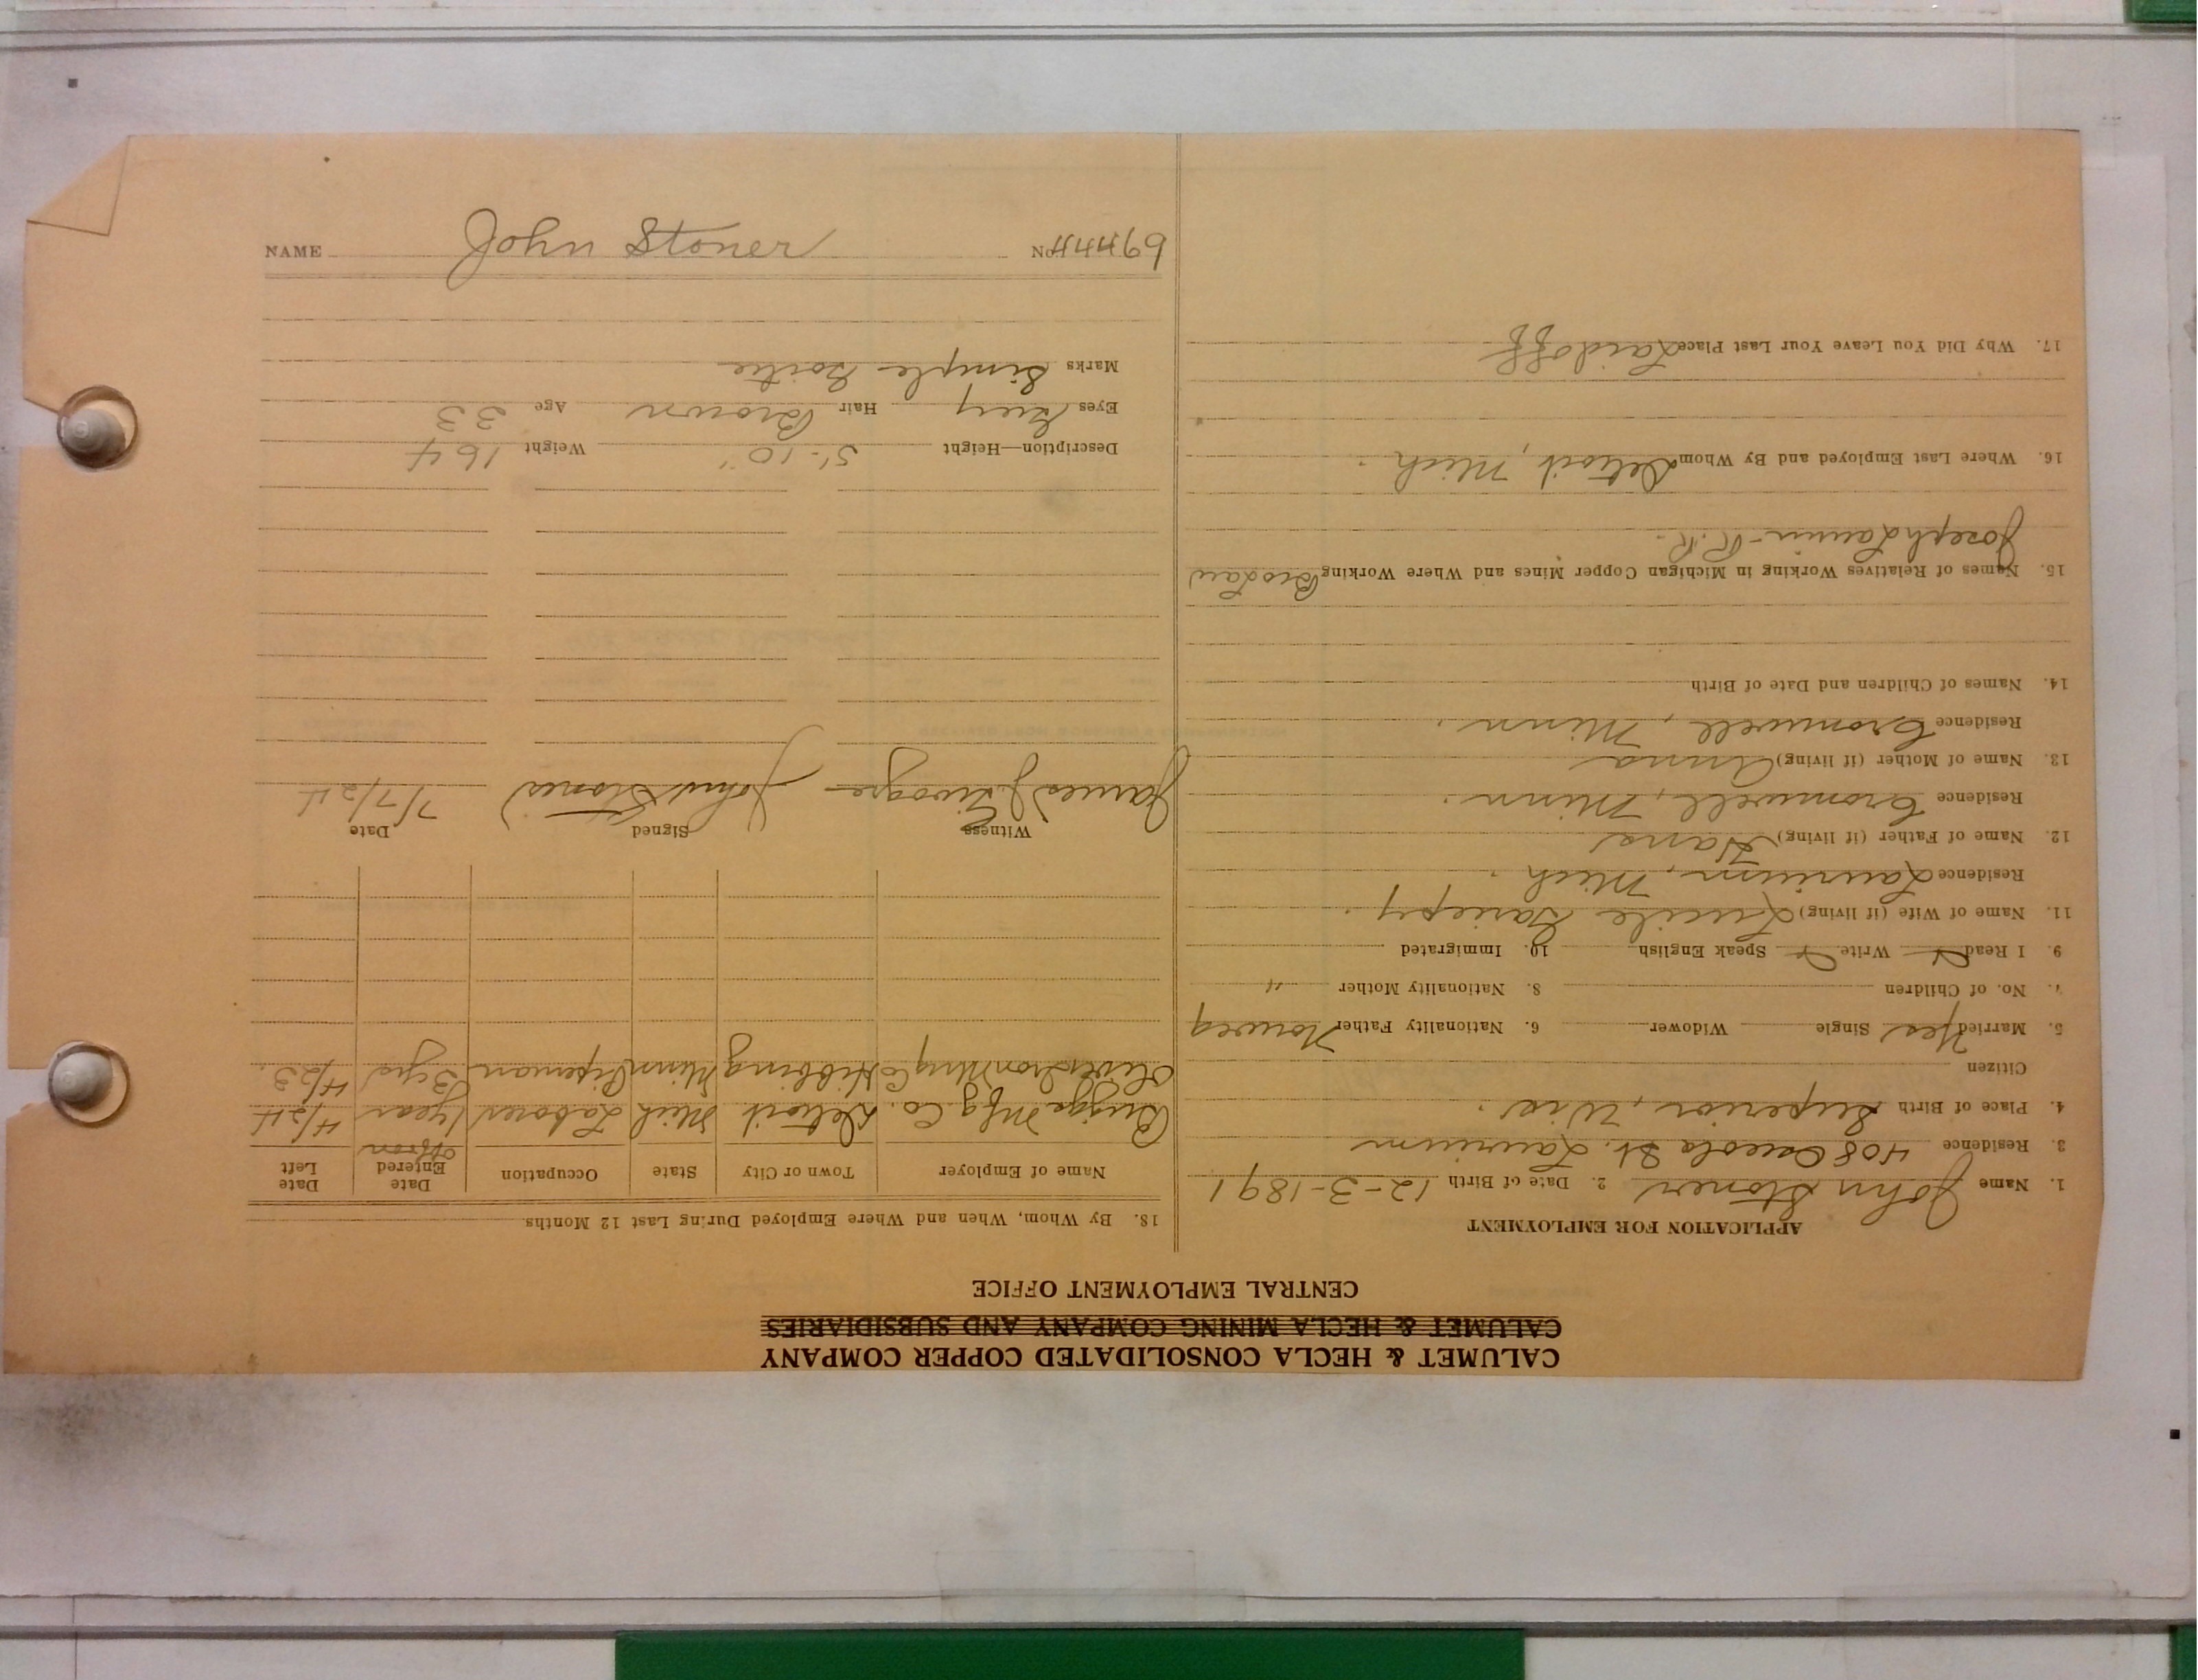 CALUMET & HECLA CONSOLIDATED COPPER COMPANY
CALUMET & HECLA MINING COMPANY AND SUBSIDIARIES
CENTRAL EMPLOYMENT OFFICE
APPLICATION FOR EMPLOYMENT
1. Name John Stoner 2. Date of Birth 12-3-1891
3. Residence 408 Osceola St. Laurium
4. Place of Birth Superior, Wis.
Citizen
5. Married Yes Single Widower 6. Nationality Father Norweg
7. No. of Children 8. Nationality Mother "
9. I Read Write Speak English 10. Immigrated
11. Name of Wife (if living) Lucile Gariepy.
Residence Laurium, Mich.
12. Name of Father (if living) Hans
Residence Cromwell, Minn.
13. Name of Mother (if living) Anna
Residence Cromwell, Minn.
14. Names of Children and Date of Birth
15. Names of Relatives Working in Michigan Copper Mines and Where Working Bro Law
Joseph - R.R.
16. Where Last Employed and By Whom Detroit, Mich.
17. Why Did You Leave Your Last Place Laid off
18. By Whom, When and Where Employed During Last 12 Months
Name of Employer Town or City State Occupation Date Entered Date Left
Briggs Mfg. Co. Detroit Mich Laborer 1 year 4/24
Oliver Iron Mng Co Hibbing Minn Pipeman 3 yrs 4/23
Witness Signed Date
James J. John Stoner 7/7/24
Description—Height 5'-10" Weight 164
Eyes Grey Hair Brown Age 33
Marks Simple Goitre
NAME John Stoner No.